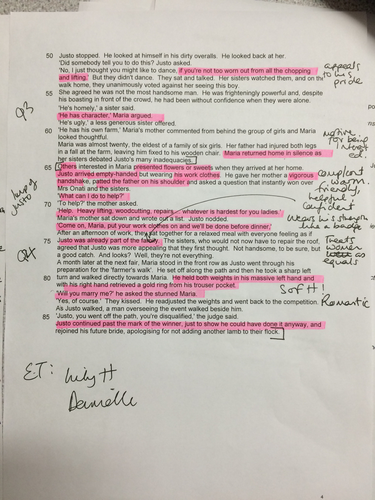 50 Justo stopped. He looked at himself in his dirty overalls. He looked back at her.
'Did somebody tell you to do this? Justo asked.
'No, I just thought you might like to dance, if you're not too worn out from all the chopping
and lifting.' But they didn't dance. They sat and talked. Her sisters watched them, and on the
walk home, they unanimously voted against her seeing this boy.
55 She agreed he was not the most handsome man. He was frighteningly powerful and, despite
his boasting in front of the crowd, he had been without confidence when they were alone.
'He's homely,' a sister said.
'He has character,' Maria argued.
'He's ugly,' a less generous sister offered.
60 'He has his own farm,' Maria's mother commented from behind the group of girls and Maria
looked thoughtful.
Maria was almost twenty, the eldest of a family of six girls. Her father had injured both legs
in a fall at the farm, leaving him fixed to his wooden chair. Maria returned home in silence as
her sisters debated Justo's many inadequacies.
65 Others interested in Maria presented flowers or sweets when they arrived at her home.
Justo arrived empty-handed but wearing his work clothes. He gave her mother a vigorous
handshake, patted the father on his shoulder and asked a question that instantly won over
Mrs Onati and the sisters.
'What can I do to help?'
70 'To help?' the mother asked.
'Help. Heavy lifting, woodcutting, repairs... whatever is hardest for you ladies.'
Maria's mother sat down and wrote out a list. Justo nodded.
'Come on, Maria, put your work clothes on and we'll be done before dinner.'
After an afternoon of work, they sat together for a relaxed meal with everyone feeling as if
75 Justo was already part of the family. The sisters, who would not now have to repair the roof,
agreed that Justo was more appealing than they first thought. Not handsome, to be sure, but
a good catch. And looks? Well, they're not everything.
A month later at the next fair, Maria stood in the front row as Justo went through his
preparation for the 'farmer's walk'. He set off along the path and then he took a sharp left
80 turn and walked directly towards Maria. He held both weights in his massive left hand and
with his right hand retrieved a gold ring from his trouser pocket.
'Will you marry me?' he asked the stunned Maria.
'Yes, of course.' They kissed. He readjusted the weights and went back to the competition.
As Justo walked, a man overseeing the event walked beside him.
85 'Justo, you went off the path, you're disqualified,' the judge said.
Justo continued past the mark of the winner, just to show he could have done it anyway, and
rejoined his future bride, apologising for not adding another lamb to their flock.
appeals
to his
pride
Q3
motive
for being
interest
ed.
Q4
warm.
friendly,
helpful
confident
wears his strength
like a badge
Treats
women
as
equals
SOFT!
Romantic
ET:
Danielle
4